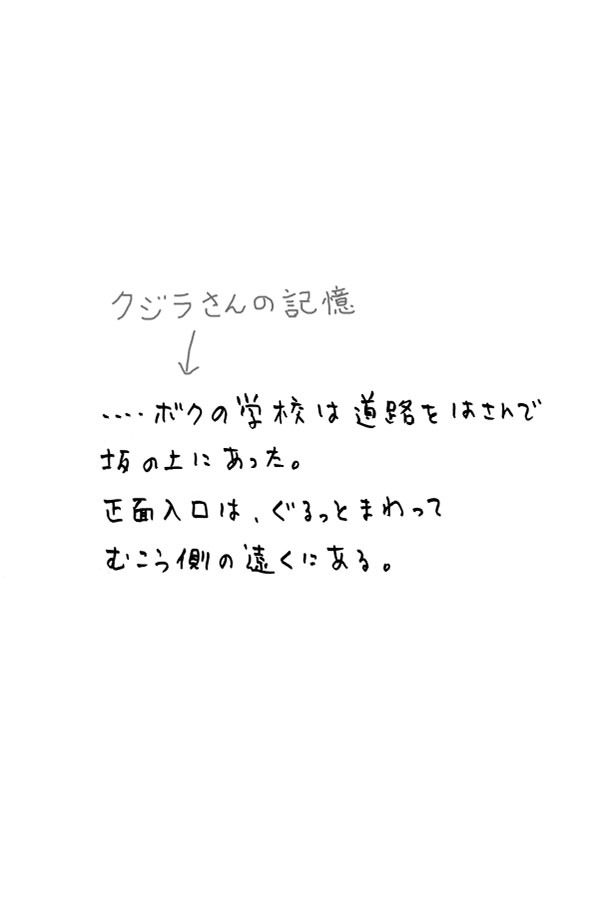 クジラさんの記憶
↓
‥‥ボクの学校は道路をはさんで
坂の上にあった。
正面入口は、ぐるっとまわって
むこう側の遠くにある。